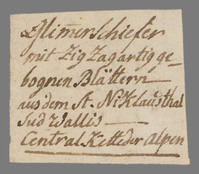 Glimmerschiefer
mit ZigZagartig ge-
bognen Blättern
aus dem St. Niklausthal
Sud Wallis —
Central Kette der Alpen